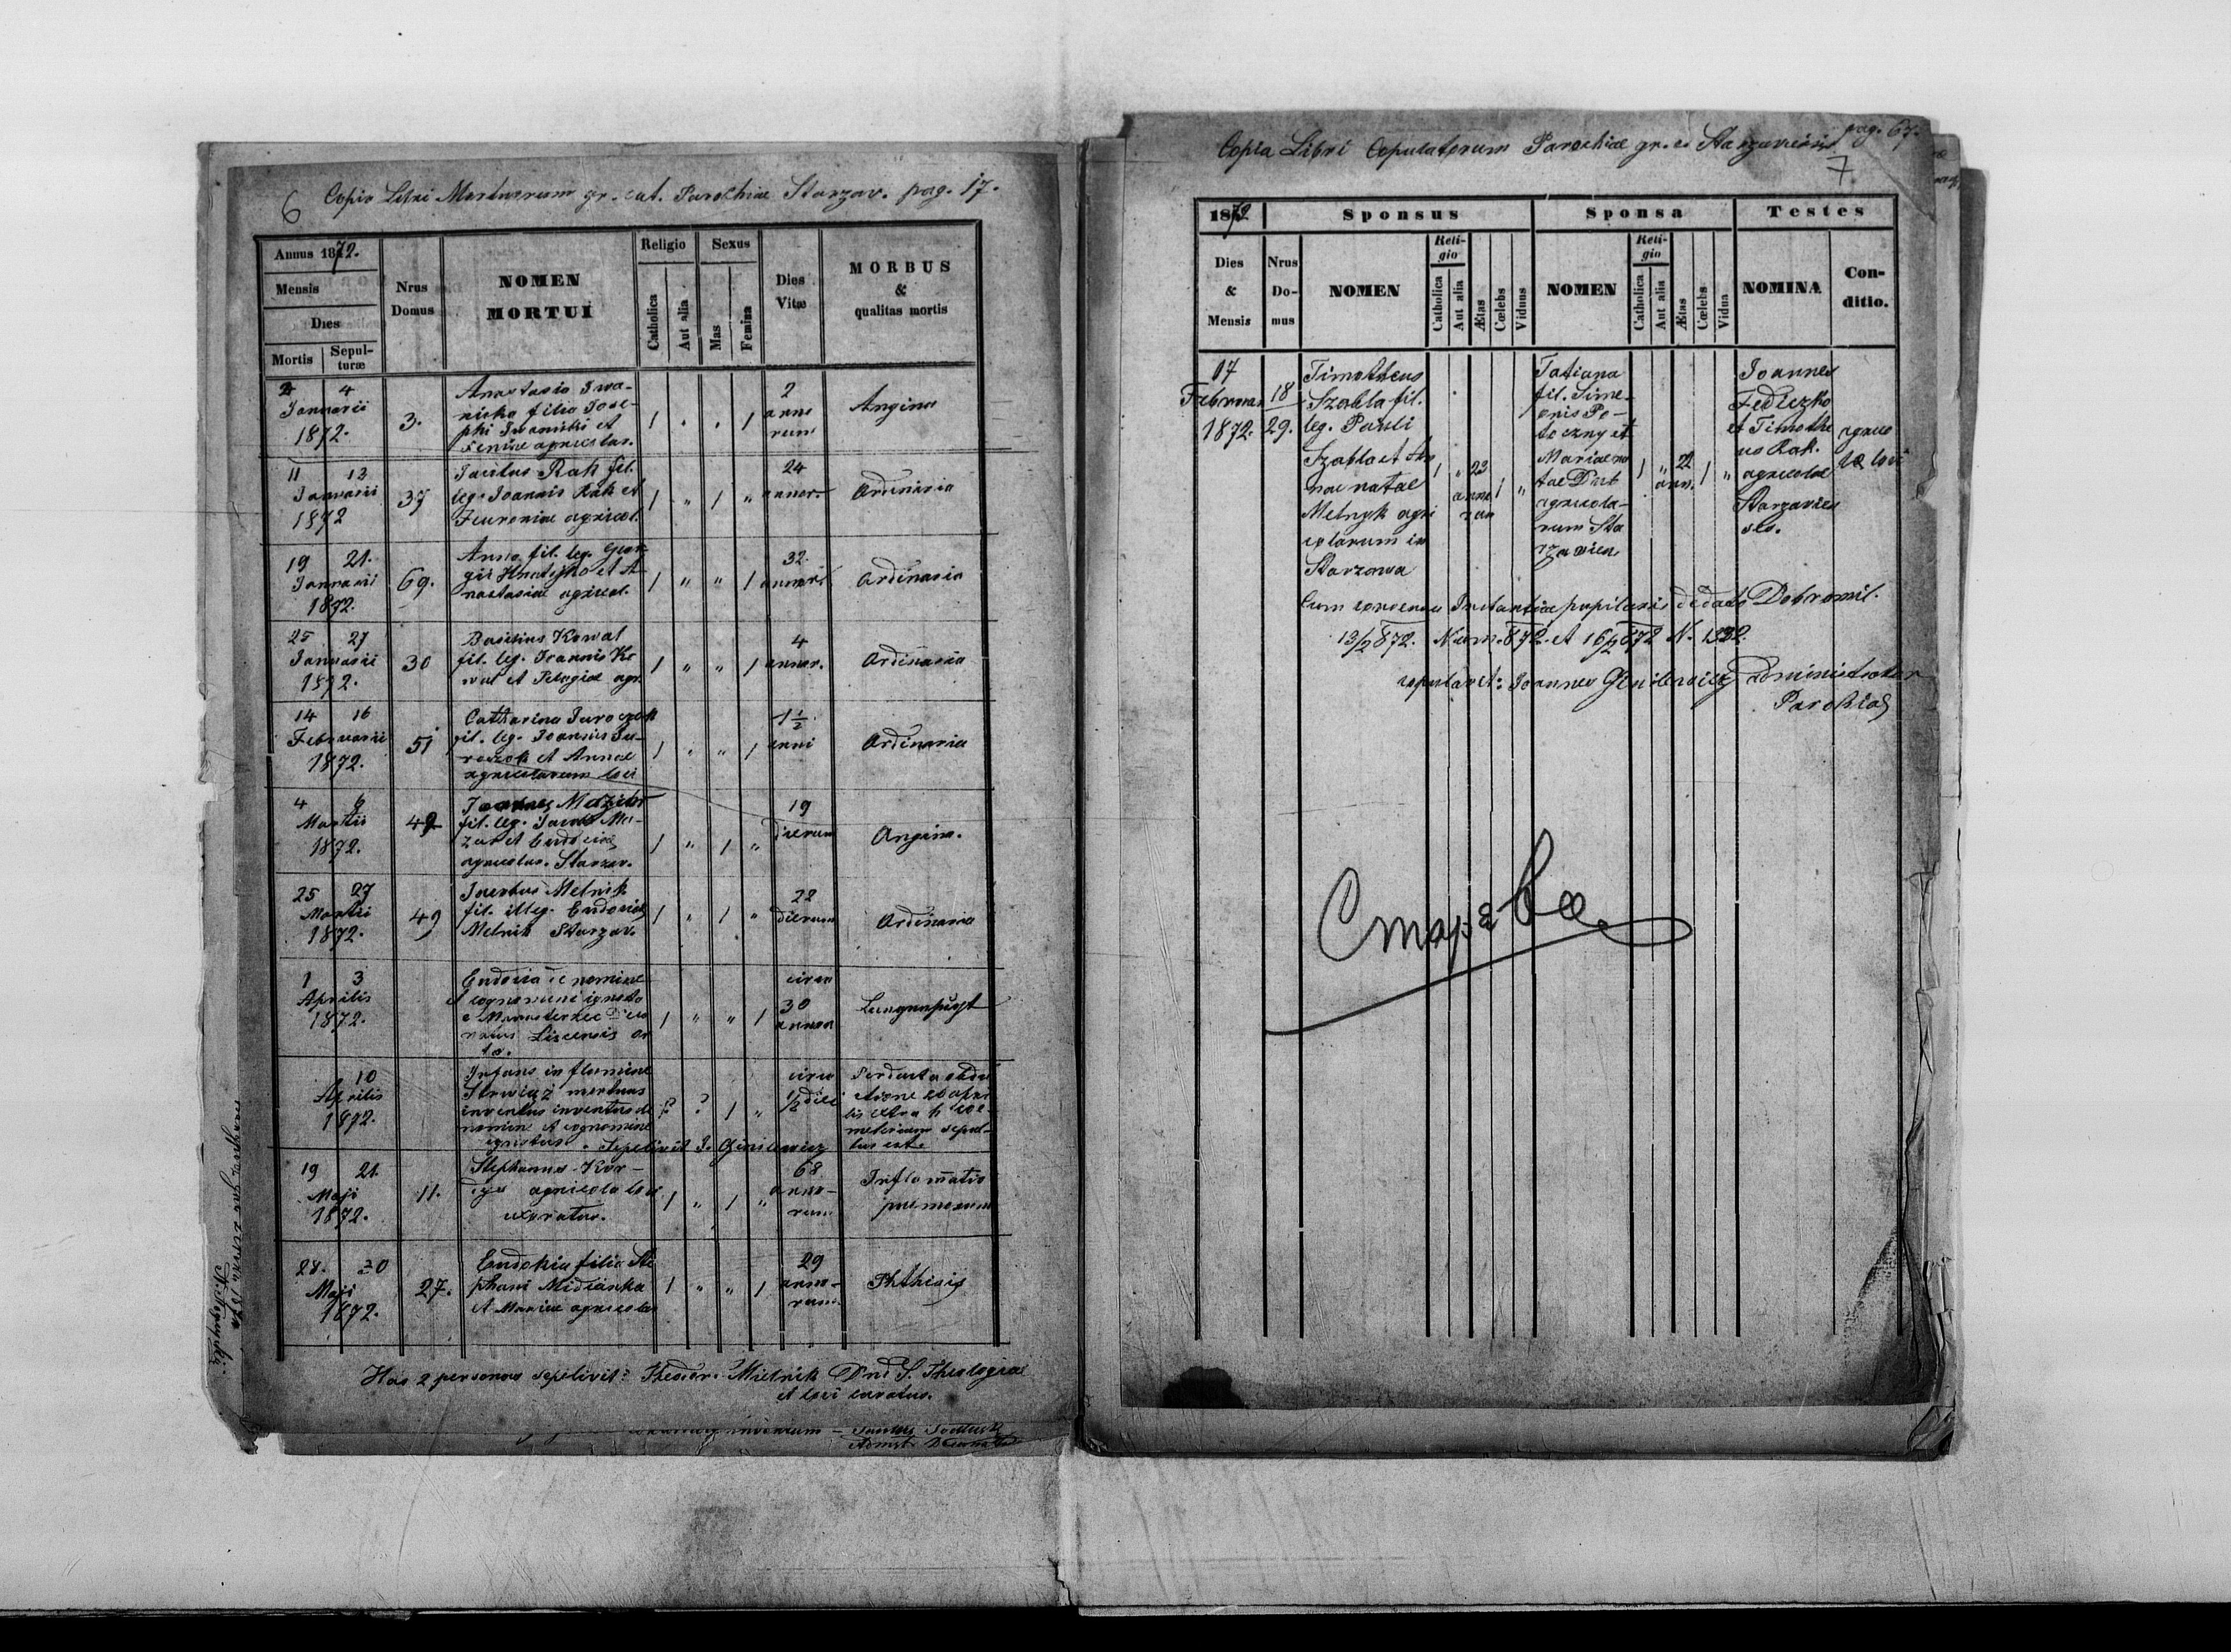 6 Copia Libri Mortuorum gr. cat. Parochiae Starzav. pag. 17.
Annus 1872.
Mensis
Dies
Mortis
Sepul-
turæ
Nrus
Domus
NOMEN
MORTUI
Religio
Catholica
Aut alia
Sexus
Mas
Femina
Dies
Vitæ
MORBUS
&
qualitas mortis
2 4
Januarii
1872.
3.
Anastasia Iwa-
nicka filia Jose-
phi Iwanicki et
agricolar.
/ . . /
2
anno
rum
Angina
11 13
Januarii
1872
37
Jacobus Rak fil.
leg. Joannis Rak et
agricol.
/ " / "
24
annor.
Ordinaria
19 21.
Januarii
1872.
69.
Anna fil. leg. Geor-
gii et A-
nastasiae agricol.
/ " " /
32.
annoru
Ordinaria
25 27
Januarii
1872.
30
Basilius Kowal
fil. leg. Joannis Ko
wal et Pelagiae agr.
/ " " /
4
annor.
Ordinaria
14 16
Februarii
1872.
51
Catharina Juroczok
fil. leg. Joannis Ju-
roczok et Annae
agricolarum loci
/ " " /
1 1/2
anni
Ordinaria
4 6
Martii
1872.
42
Joannes
fil. leg. Ma-
zur et Eudociae
agricolar. Starzav.
/ " / "
19
dierum
Angina.
25 27
Martii
1872.
49
Melnik
fil. illeg. Eudociae
Melnik Starzav.
/ " / "
22
dierum
Ordinaria
1 3
Aprilis
1872.
Eudocia de nomine
et cognomine ignota
e
Liscensis or
ta.
/ " " /
circa
30
annor
Lungensucht
10
Aprilis
1872.
Infans in flumine
Strwiąż mortuus
inventus inventus de
nomine et cognomine
ignotus. Sepelivit J. Gienilewicz
? ? / "
circa
1/2 diei
metorium sepul-
tus est.
19 21.
Maji
1872.
11.
Stephanus Kor-
dys agricola loci
uxoratus.
/ " / "
68
anno-
rum
Inflamatio
pneumonum
28. 30
Maji
1872.
27.
Eudokia filia Ste
phani Midianka
et Mariae agricolar
/ " " /
29
anno-
rum.
Phthisis
Has 2 personas sepelivit: Theodor. Mielnik Dnd S. Theologiae
et loci curatus.
Copia Libri Copulatorum Parochiae gr. c. Starzaviensis pag. 67.
7
1872
Sponsus
Sponsa
Testes
Dies
&
Mensis
Nrus
Do-
mus
NOMEN
Reli-
gio
Catholica
Aut alia
Ætas
Cœlebs
Viduus
NOMEN
Reli-
gio
Catholica
Aut alia
Ætas
Cœlebs
Vidua
NOMINA
Con-
ditio.
17
Februar
1872.
18
29.
Timotheus
Szabla fil.
leg. Pauli
Szabla et An
nae natae
Melnyk agri
colarum in
Starzawa
/ " 23
anno
rum
/ "
Tatiana
fil. Sime-
onis Po-
toczny et
Mariae na
tae Dub
agricola-
rum Sta
rzavien.
/ " 22
ann.
/ "
Joannes
Fediczko
et Timothe
us Rak.
agricolae
Starzavien
ses.
agrico
lae loci
Cum consensu Instantiae pupilaris de dato Dobromil.
13/2 872. Num. 872. et 16/2 872 N. 1332.
copulavit: Joannes Gienilewicz administrator
Parochiae
Старава